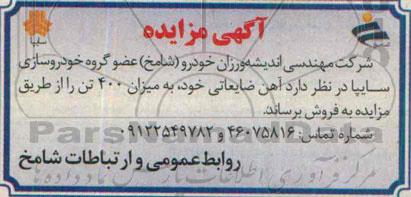 آگهی مزایده
سایپا
شرکت مهندسی اندیشه‌ورزان خودرو (شامخ) عضو گروه خودروسازی
سایپا در نظر دارد آهن ضایعاتی خود، به میزان ۴۰۰ تن را از طریق
مزایده به فروش برساند.
شماره تماس: ۴۶۰۷۵۸۱۶ و ۰۹۱۲۲۵۴۹۷۸۲
ParsNamadData
روابط عمومی و ارتباطات شامخ